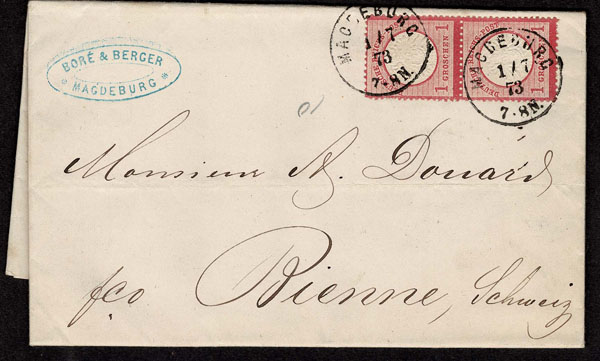 BORÉ & BERGER
MAGDEBURG
MAGDEBURG
1/7
73
7-8N.
1 GROSCHEN 1
MAGDEBURG
1/7
73
7-8N.
1 GROSCHEN 1
Monsieur A. Douard
fco Bienne, Schweiz